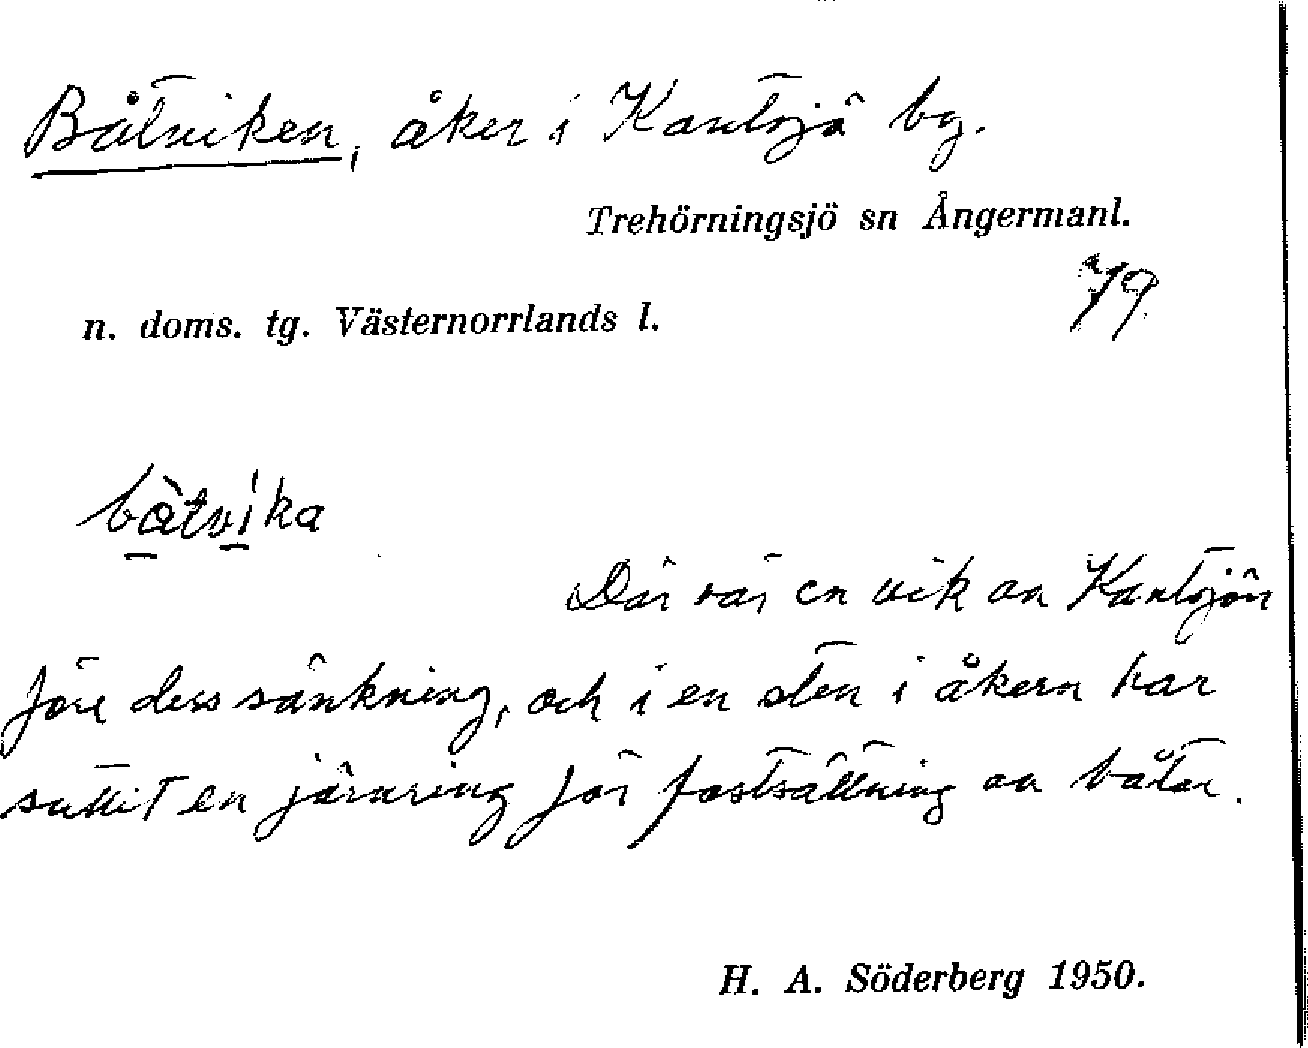 Båtviken, åker i Kantsjö by.
Trehörningsjö sn Ångermanl.
79
n. doms. tg. Västernorrlands l.
bàtvika
Där var en vik av Kantsjön
före dess sänkning, och i en sten i åkern har
suttit en järnring för fastsättning av båtar.
H. A. Söderberg 1950.